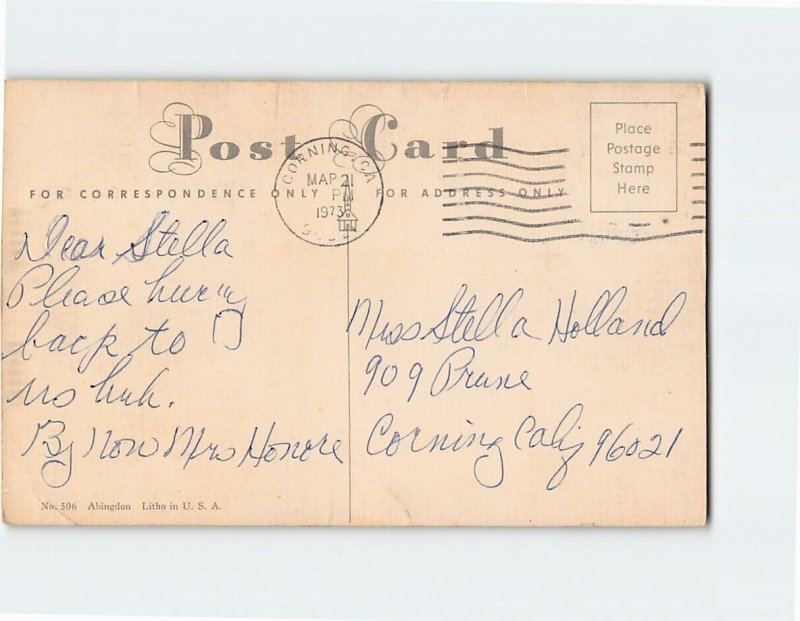 Post Card
FOR CORRESPONDENCE ONLY
FOR ADDRESS ONLY
Place
Postage
Stamp
Here
CORNING, CA
MAR 21
PM
1973
Dear Stella
Please hurry
back to
us huh.
By Now Mrs Honore
Miss Stella Holland
909 Prune
Corning Calif 96021
No. 506 Abingdon Litho in U. S. A.